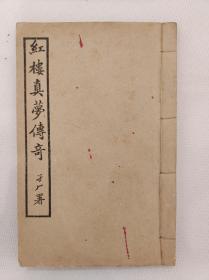 紅樓真夢傳奇
子厂署